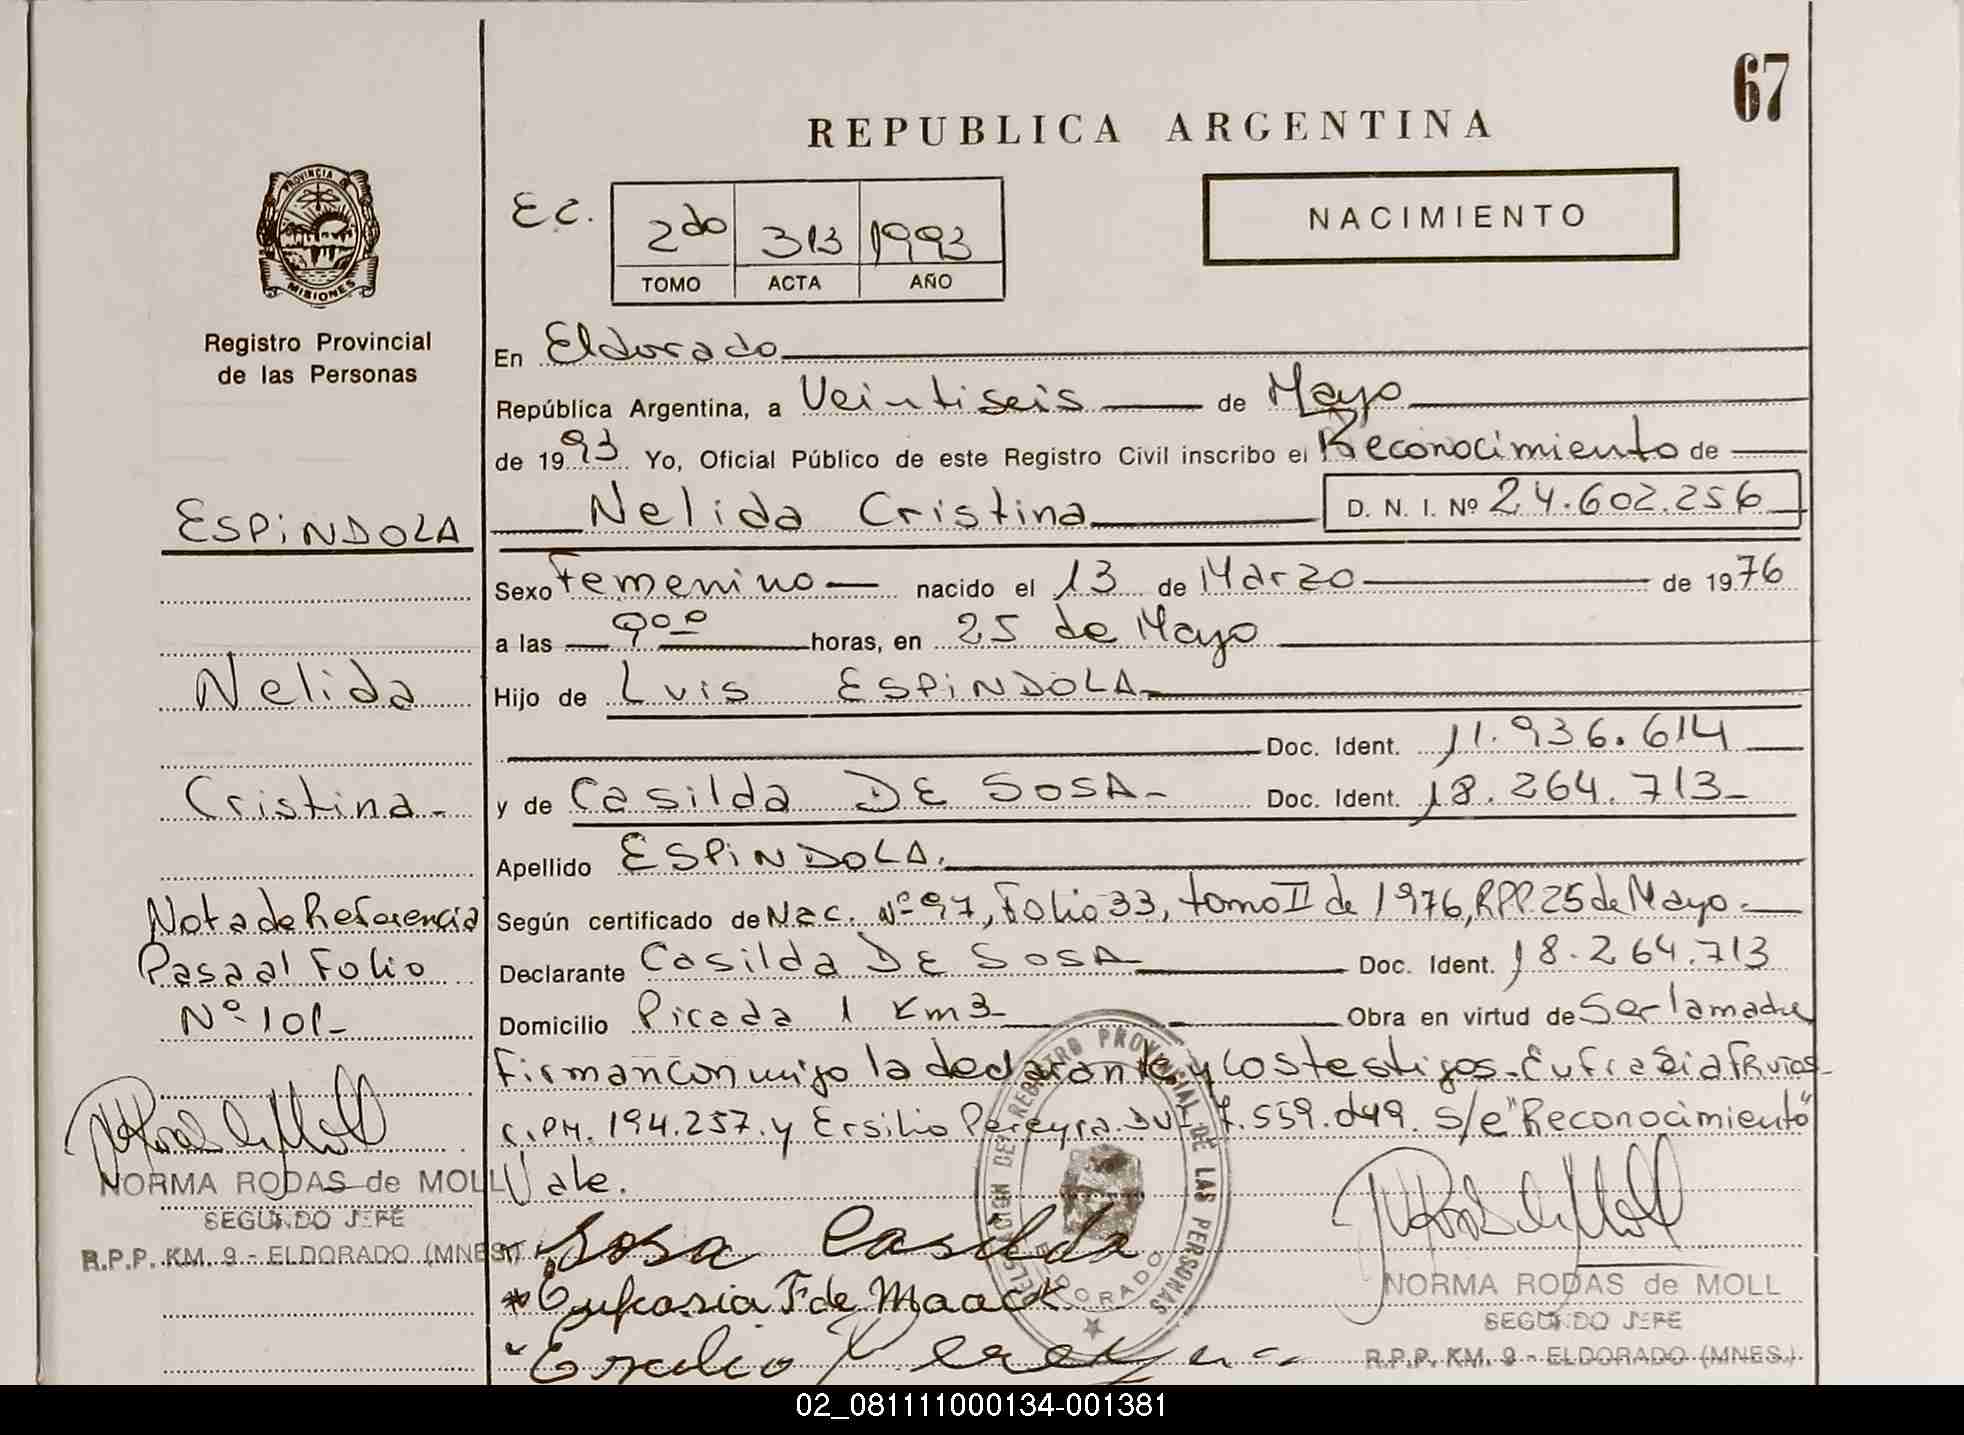 67
REPUBLICA ARGENTINA
PROVINCIA DE
MISIONES
Registro Provincial
de las Personas
EC.
2do 313 1993
TOMO ACTA AÑO
NACIMIENTO
En Eldorado
República Argentina, a Veintiseis de Mayo
de 1993 Yo, Oficial Público de este Registro Civil inscribo el Reconocimiento de
ESPINDOLA
Nelida Cristina D. N. I. Nº 24.602.256
Sexo Femenino nacido el 13 de Marzo de 1976
a las 900 horas, en 25 de Mayo
Nelida
Hijo de Luis ESPINDOLA
Doc. Ident. 11.936.614
Cristina.-
y de Casilda DE SOSA- Doc. Ident. 18.264.713-
Apellido ESPINDOLA.
Nota de Referencia
Pasa al Folio
Nº 101-
Según certificado de Nac. Nº 97, Folio 33, tomo II de 1976, RPP. 25 de Mayo.-
Declarante Casilda DE SOSA Doc. Ident. 18.264.713
Domicilio Picada 1 Km 3- Obra en virtud de Ser la madre
Firman conmigo la declarante y los testigos. Eufrasia Fruios
C.I.PM. 194.257. y Ersilio Pereyra. DNI 7.559.049. s/e "Reconocimiento"
Vale.
NORMA RODAS de MOLL
SEGUNDO JEFE
R.P.P. KM. 9 - ELDORADO (MNES.)
Sosa Casilda
* Eufrasia F de Maack
Ersilio Pereyra
DELEGACION DEL REGISTRO PROVINCIAL DE LAS PERSONAS
ELDORADO
NORMA RODAS de MOLL
SEGUNDO JEFE
R.P.P. KM. 9 - ELDORADO (MNES.)
02_081111000134-001381